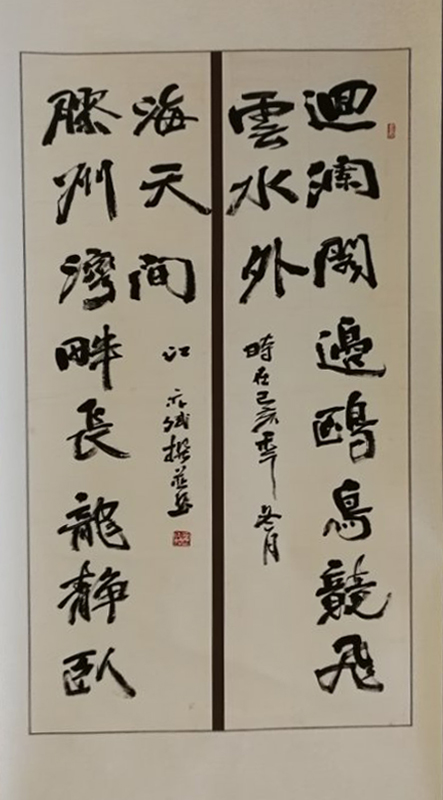 迴瀾閣邊鷗鳥競飛
雲水外
時在己亥年冬月
膠州灣畔長龍靜臥
海天間
江撰並書